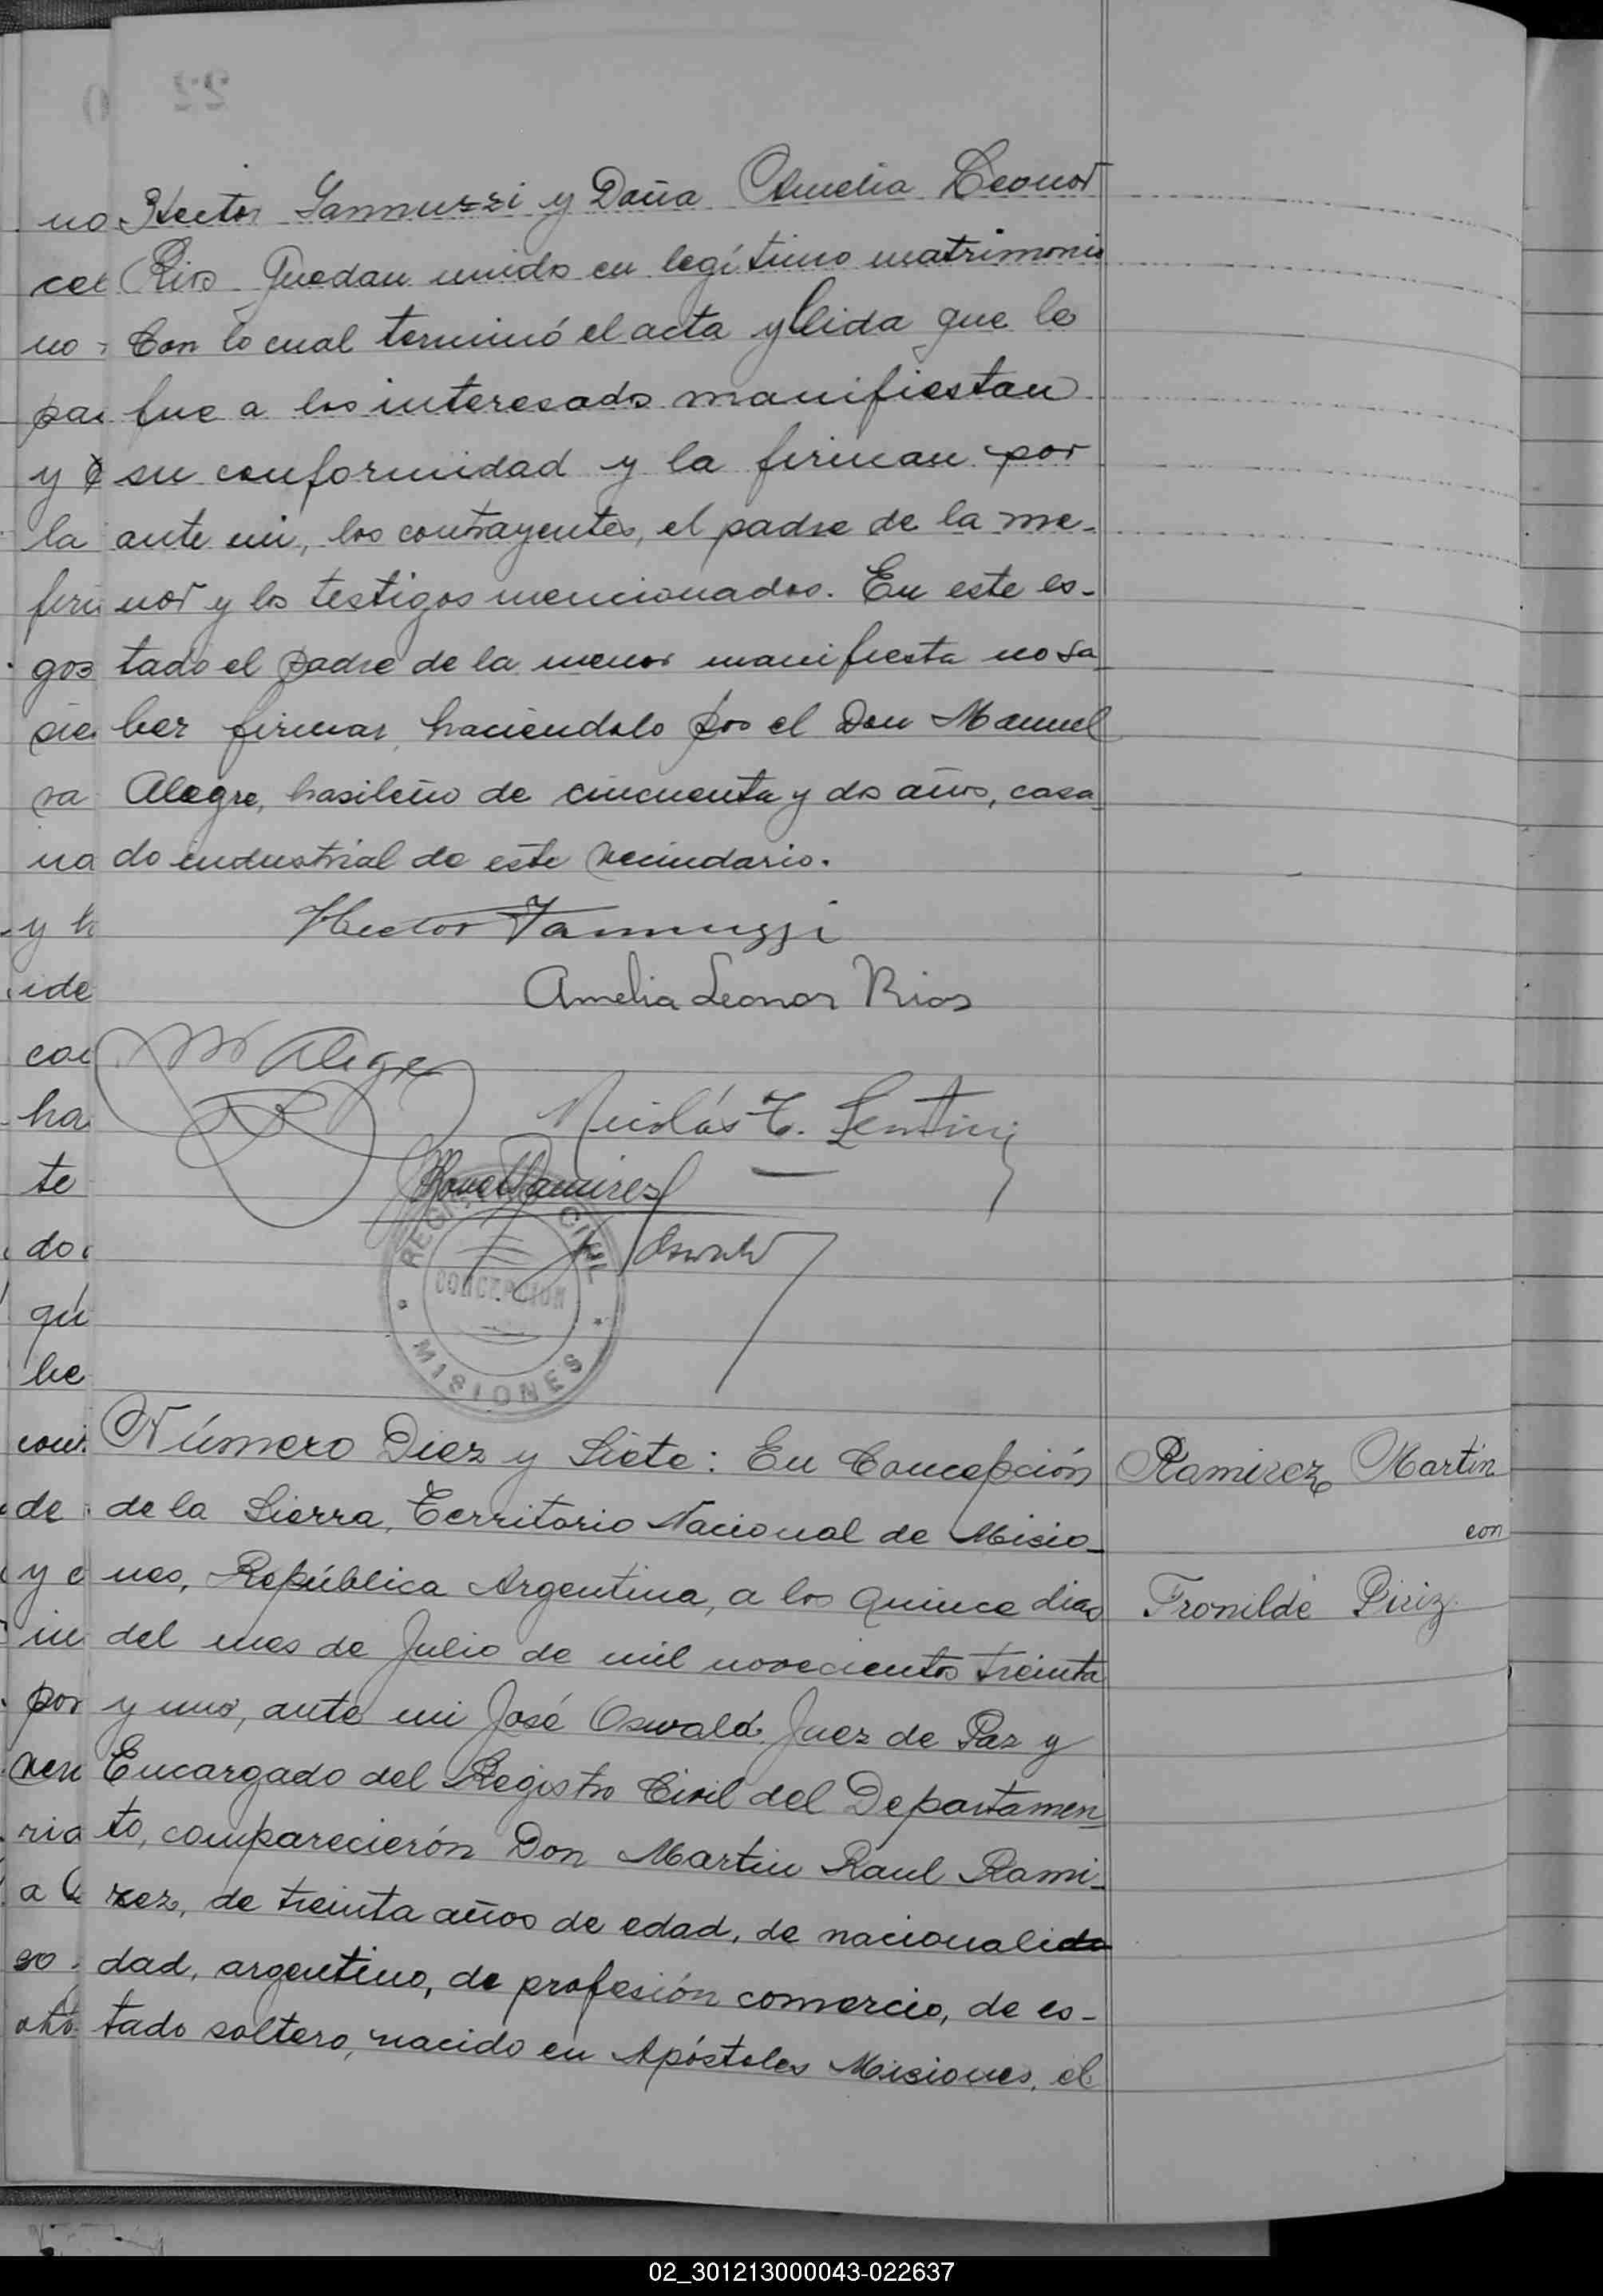 Hector Iannuzzi y Doña Amelia Leonor
Rios Quedan unidos en legítimo matrimonio
Con lo cual terminó el acta y leida que le
fue a los interesados manifiestan
su conformidad y la firman por
ante mi, los contrayentes, el padre de la me-
nor y los testigos mencionados. En este es-
tado el padre de la menor manifiesta no sa
ber firmar, haciendolo por el Don Manuel
Alegre, brasileño de cincuenta y dos años, casa
do industrial de este vecindario.
Hector Iannuzzi
Amelia Leonor Rios
M Alegre
Nicolás T.
Ramirez
J Oswald
REGISTRO CIVIL
CONCEPCION
MISIONES
Número Diez y Siete: En Concepción
de la Sierra, Territorio Nacional de Misio-
nes, República Argentina, a los quince dias
del mes de Julio de mil novecientos treinta
y uno, ante mi José Oswald Juez de Paz y
Encargado del Registro Civil del Departamen
to, comparecierón Don Martin Raul Rami-
rez, de treinta años de edad, de nacionali
dad, argentino, de profesión comercio, de es-
tado soltero, nacido en Apóstoles Misiones, el
Ramirez Martin
con
Fronilde Piriz
no
cel
no
pa
y
la
firm
gos
sie
ra
na
y h
ide
con
ha
te
do
qu
be
con
de
y e
in
por
ven
ria
a
so
02_301213000043-022637